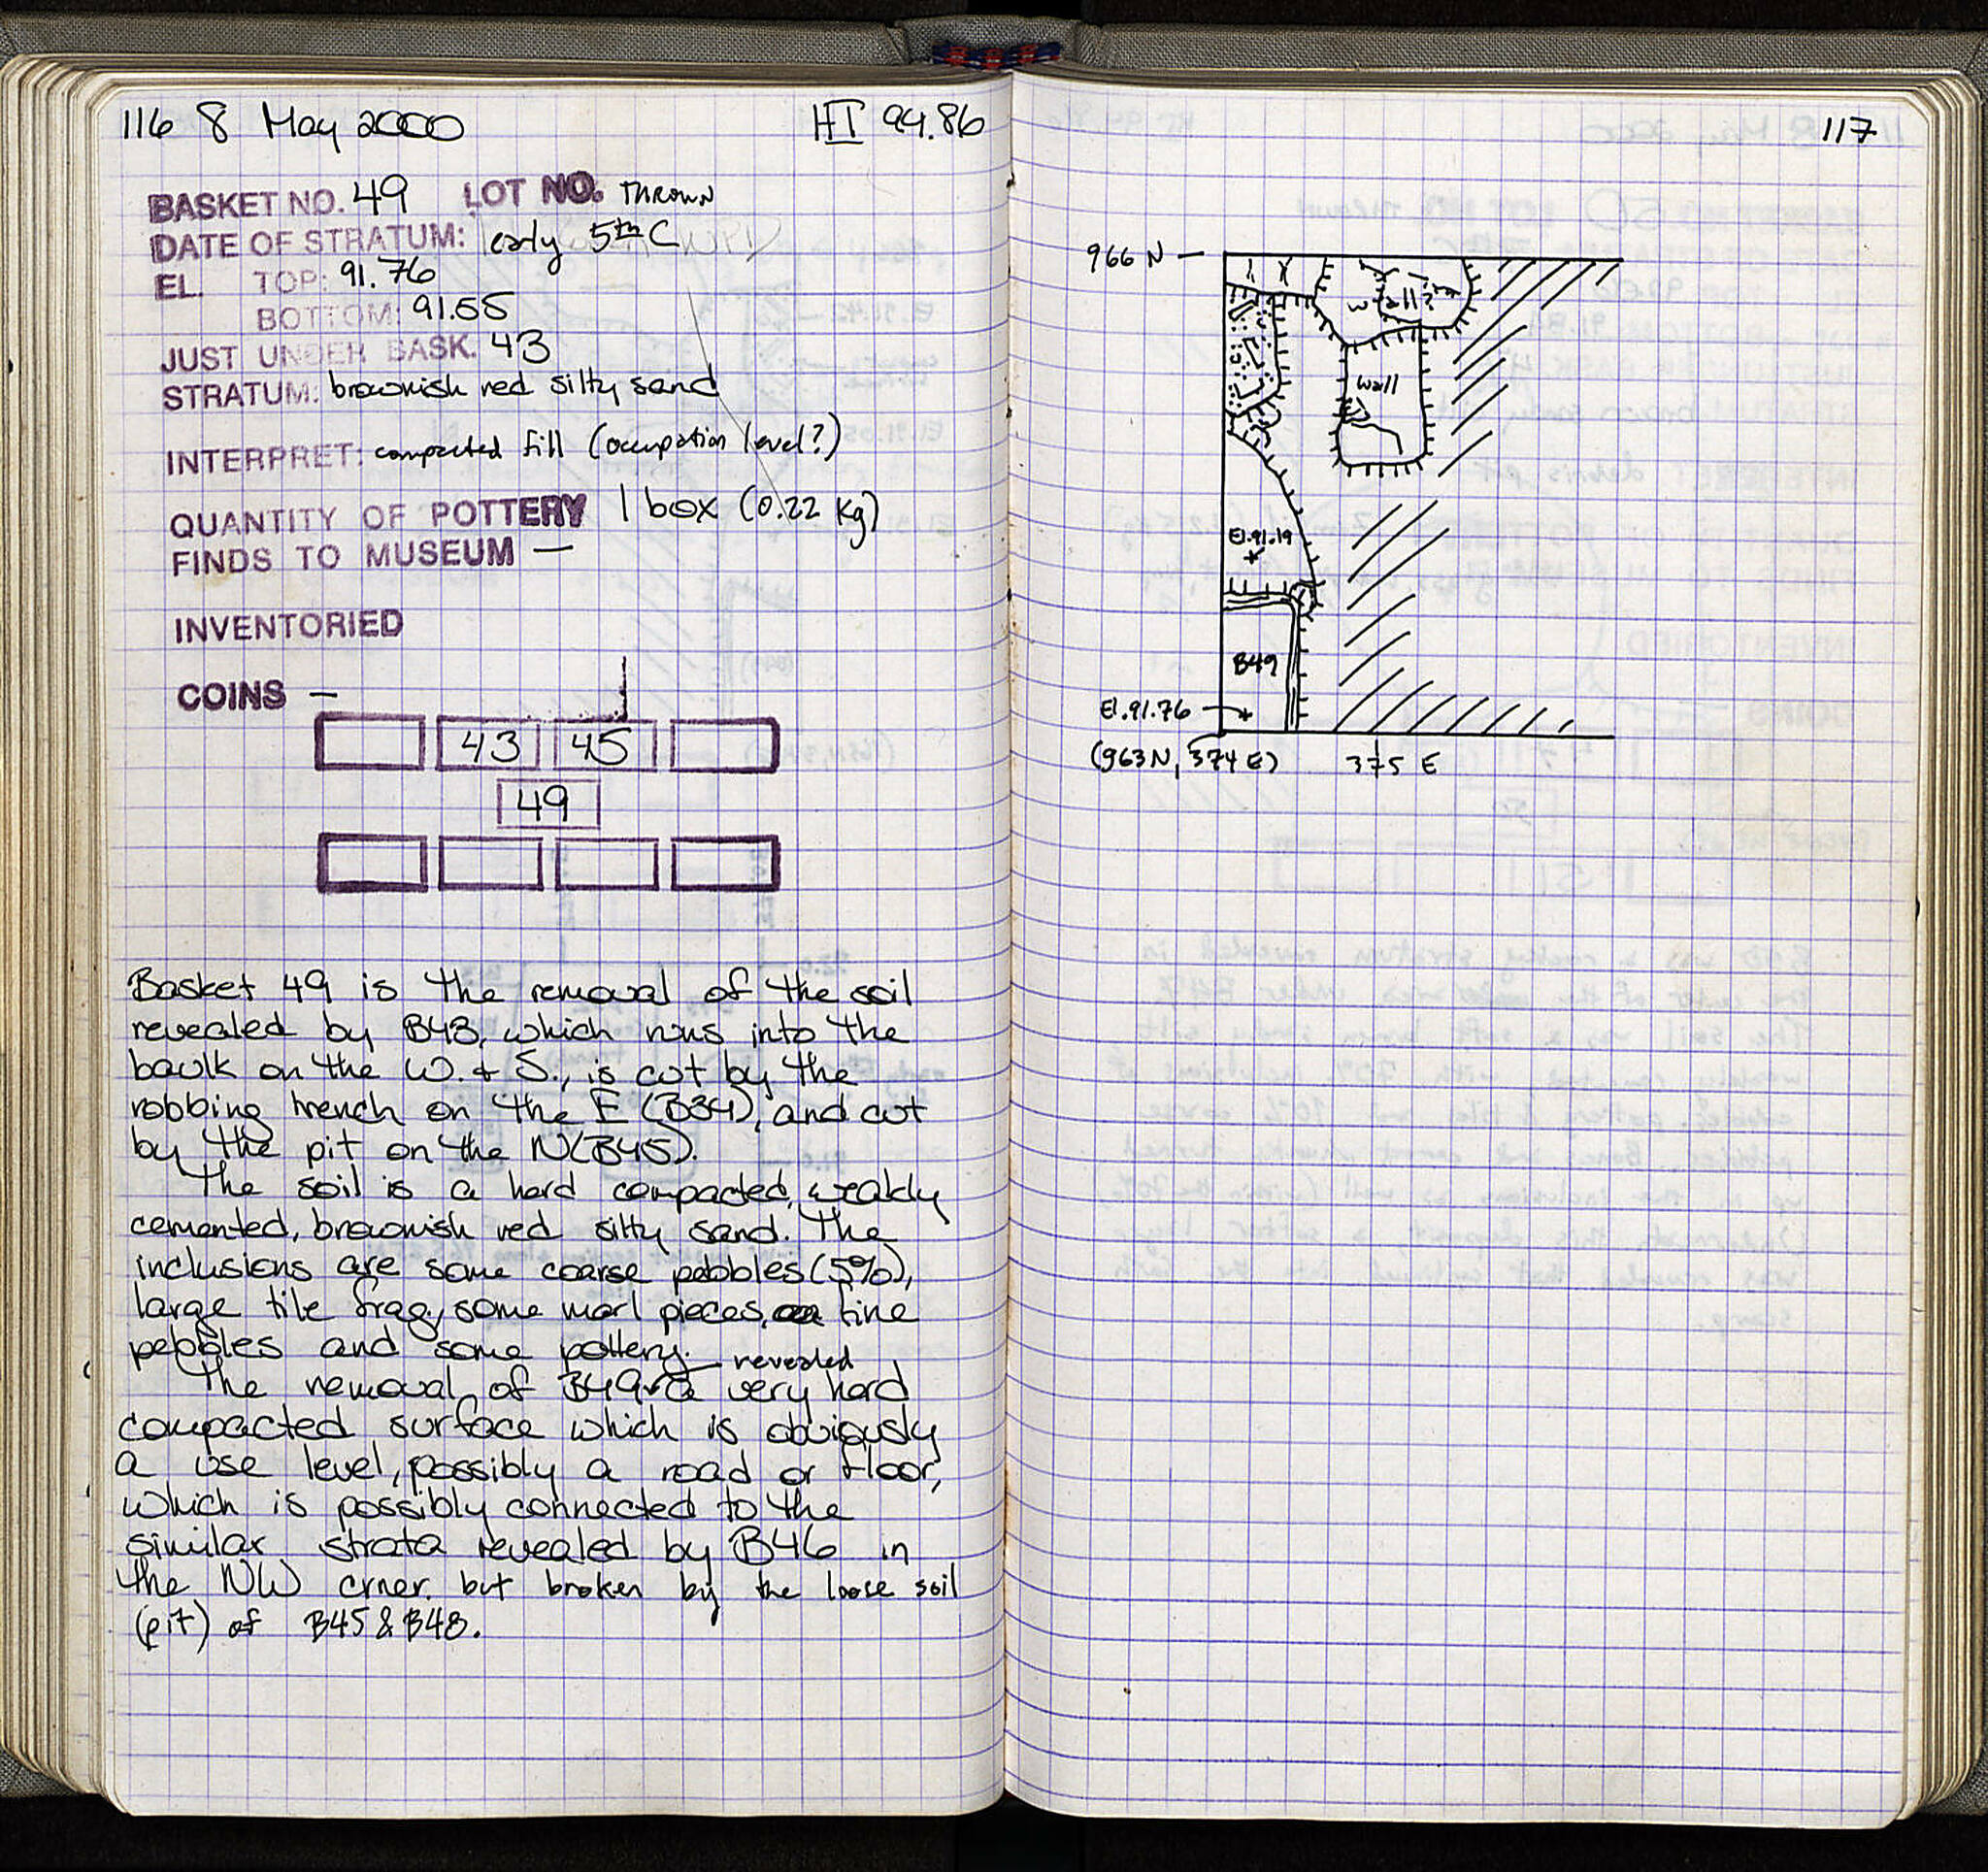 116 8 May 2000 HI 94.86
BASKET NO. 49 LOT NO. THROWN
DATE OF STRATUM: early 5th C
EL. TOP: 91.76
BOTTOM: 91.55
JUST UNDER BASK. 43
STRATUM: brownish red silty sand
INTERPRET: compacted fill (occupation level?)
QUANTITY OF POTTERY 1 box (0.22 kg)
FINDS TO MUSEUM —
INVENTORIED
COINS —
43 45
49
Basket 49 is the removal of the soil
revealed by B43, which runs into the
baulk on the W. & S., is cut by the
robbing trench on the E (B34), and cut
by the pit on the N (B45).
The soil is a hard compacted, weakly
cemented, brownish red silty sand. The
inclusions are some coarse pebbles (5%),
large tile frag, some marl pieces, fine
pebbles and some pottery.
The removal of B49 revealed a very hard
compacted surface which is obviously
a use level, possibly a road or floor,
which is possibly connected to the
similar strata revealed by B46 in
the NW crner. but broken by the loose soil
(pit) of B45 & B48.
117
966 N
wall?
wall
El. 91.19
B49
El. 91.76
(963 N, 374 E) 375 E